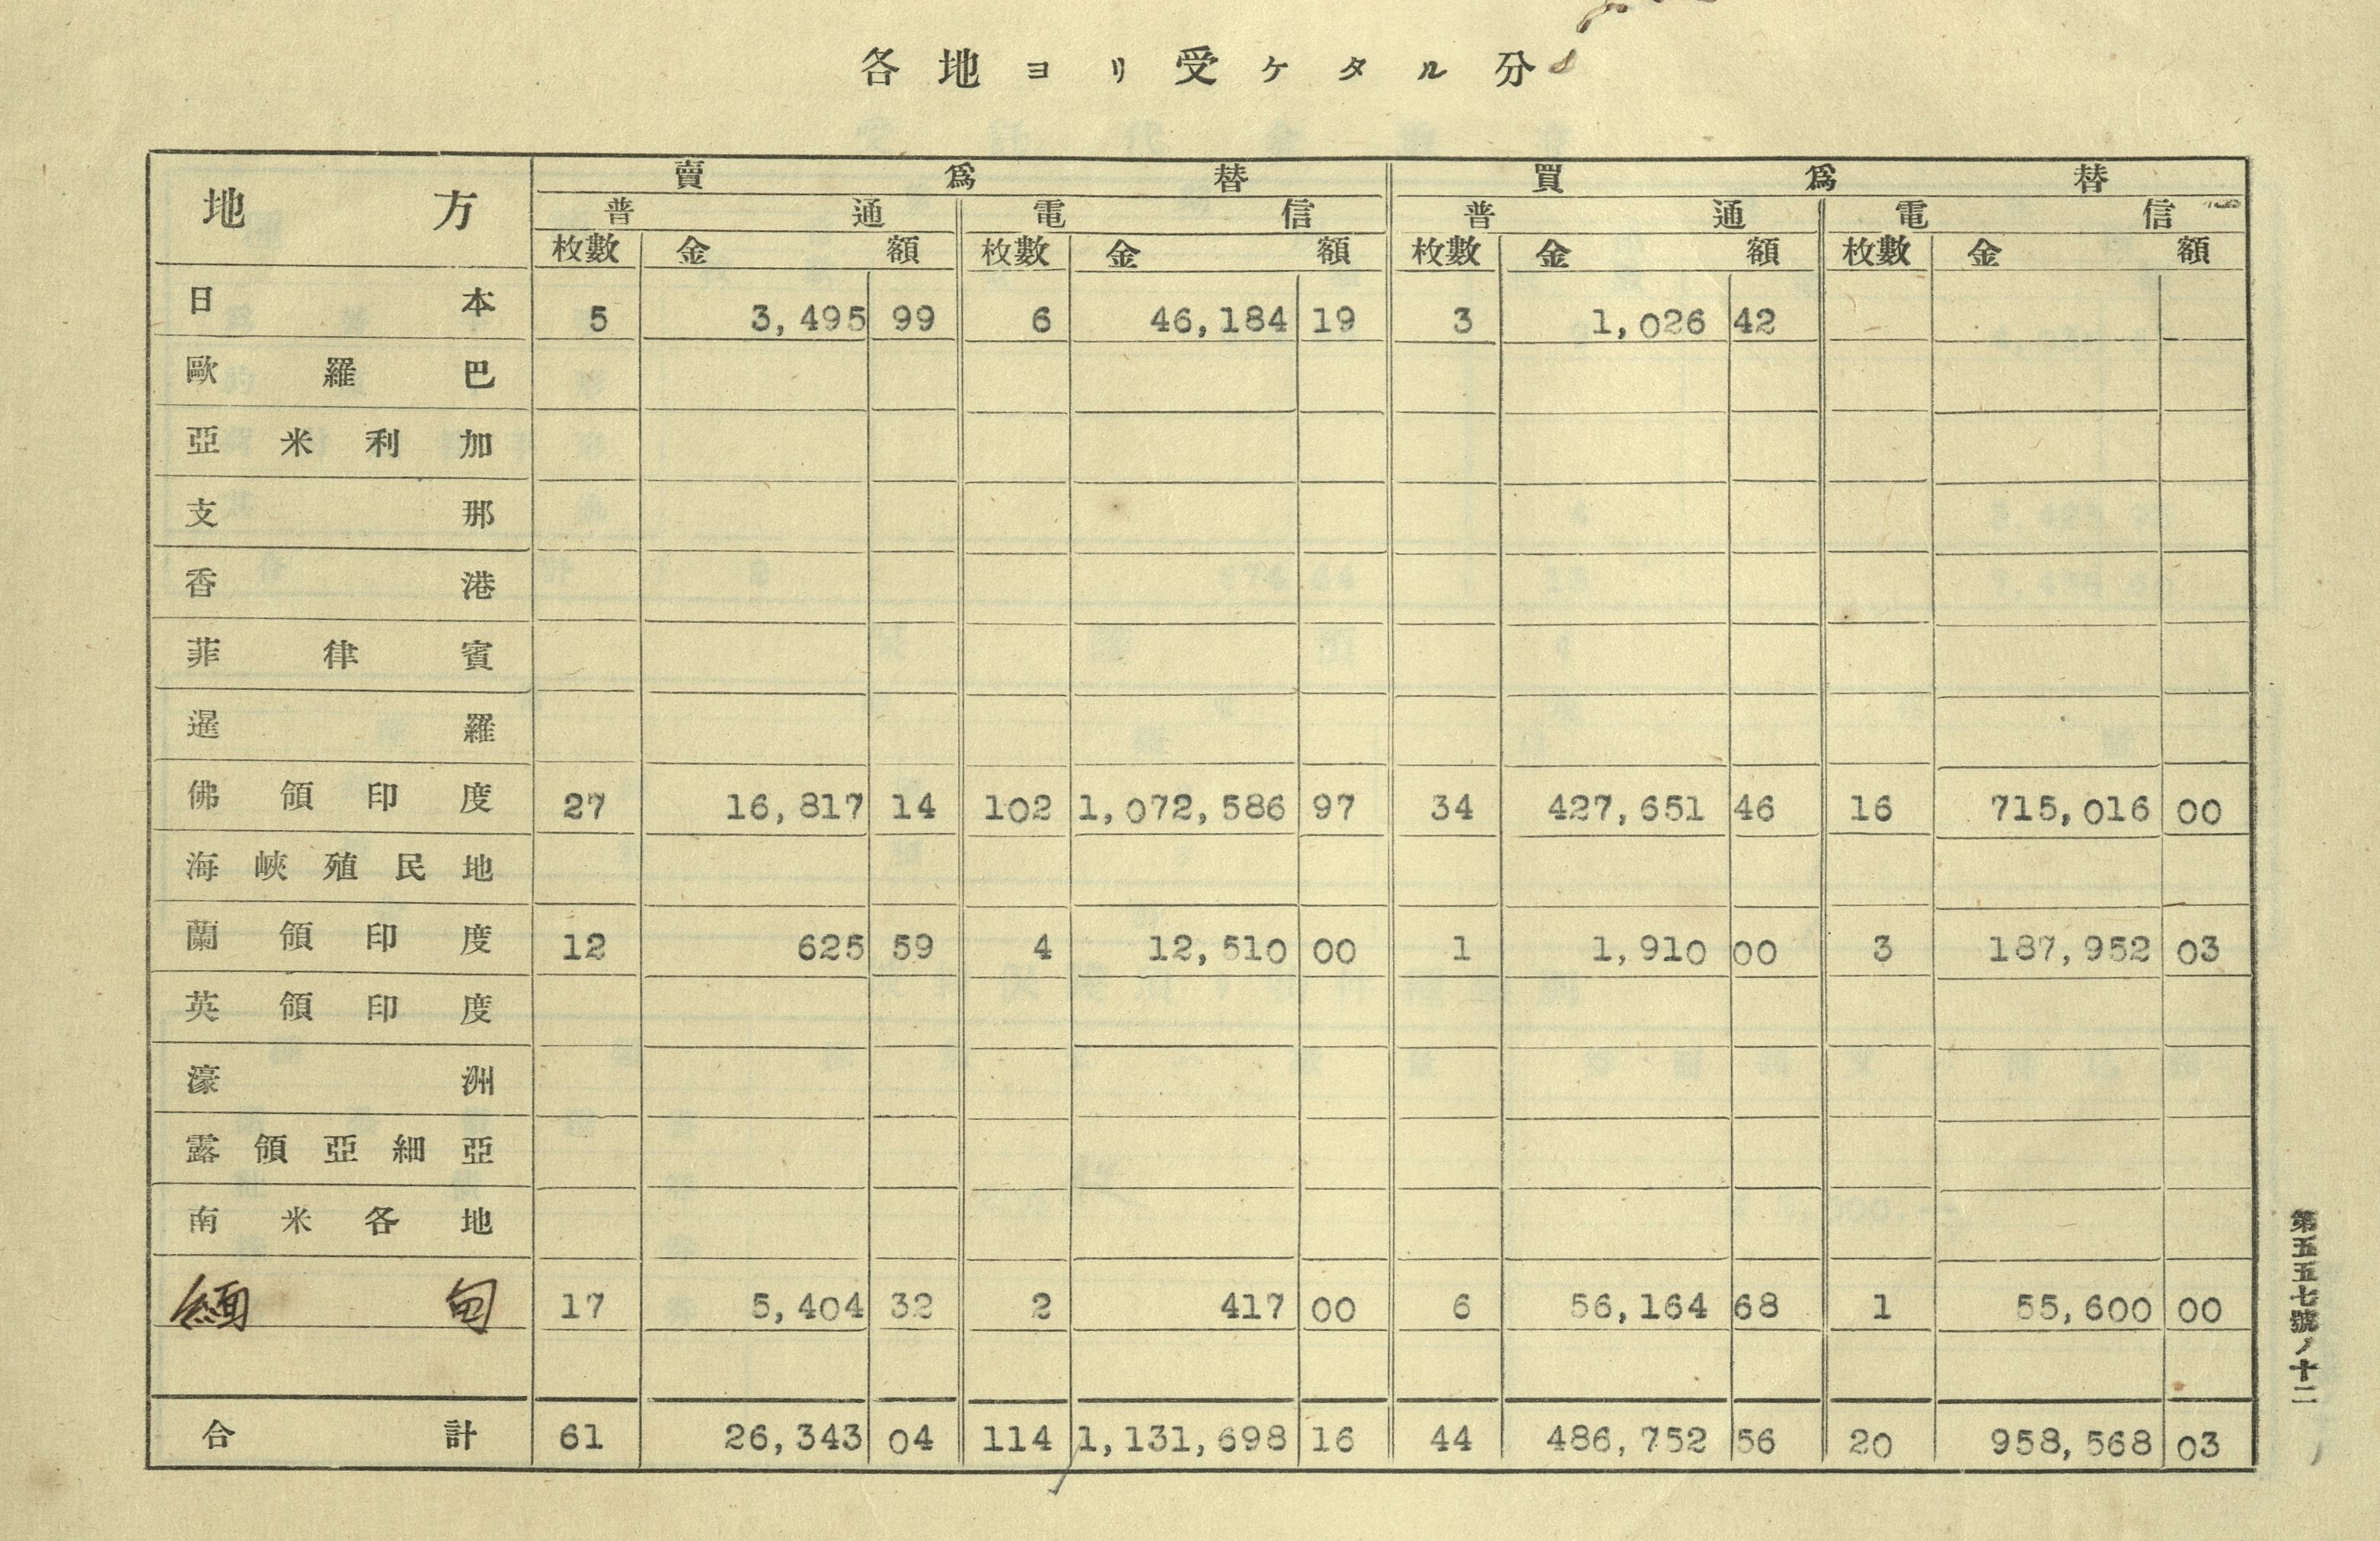 各地ヨリ受ケタル分
地方 賣爲替 買爲替
普通 電信 普通 電信
枚數 金額 枚數 金額 枚數 金額 枚數 金額
日本 5 3,495 99 6 46,184 19 3 1,026 42
歐羅巴
亞米利加
支那
香港
菲律賓
暹羅
佛領印度 27 16,817 14 102 1,072,586 97 34 427,651 46 16 715,016 00
海峽殖民地
蘭領印度 12 625 59 4 12,510 00 1 1,910 00 3 187,952 03
英領印度
濠洲
露領亞細亞
南米各地
緬甸 17 5,404 32 2 417 00 6 56,164 68 1 55,600 00
合計 61 26,343 04 114 1,131,698 16 44 486,752 56 20 958,568 03
第五五七號ノ十二